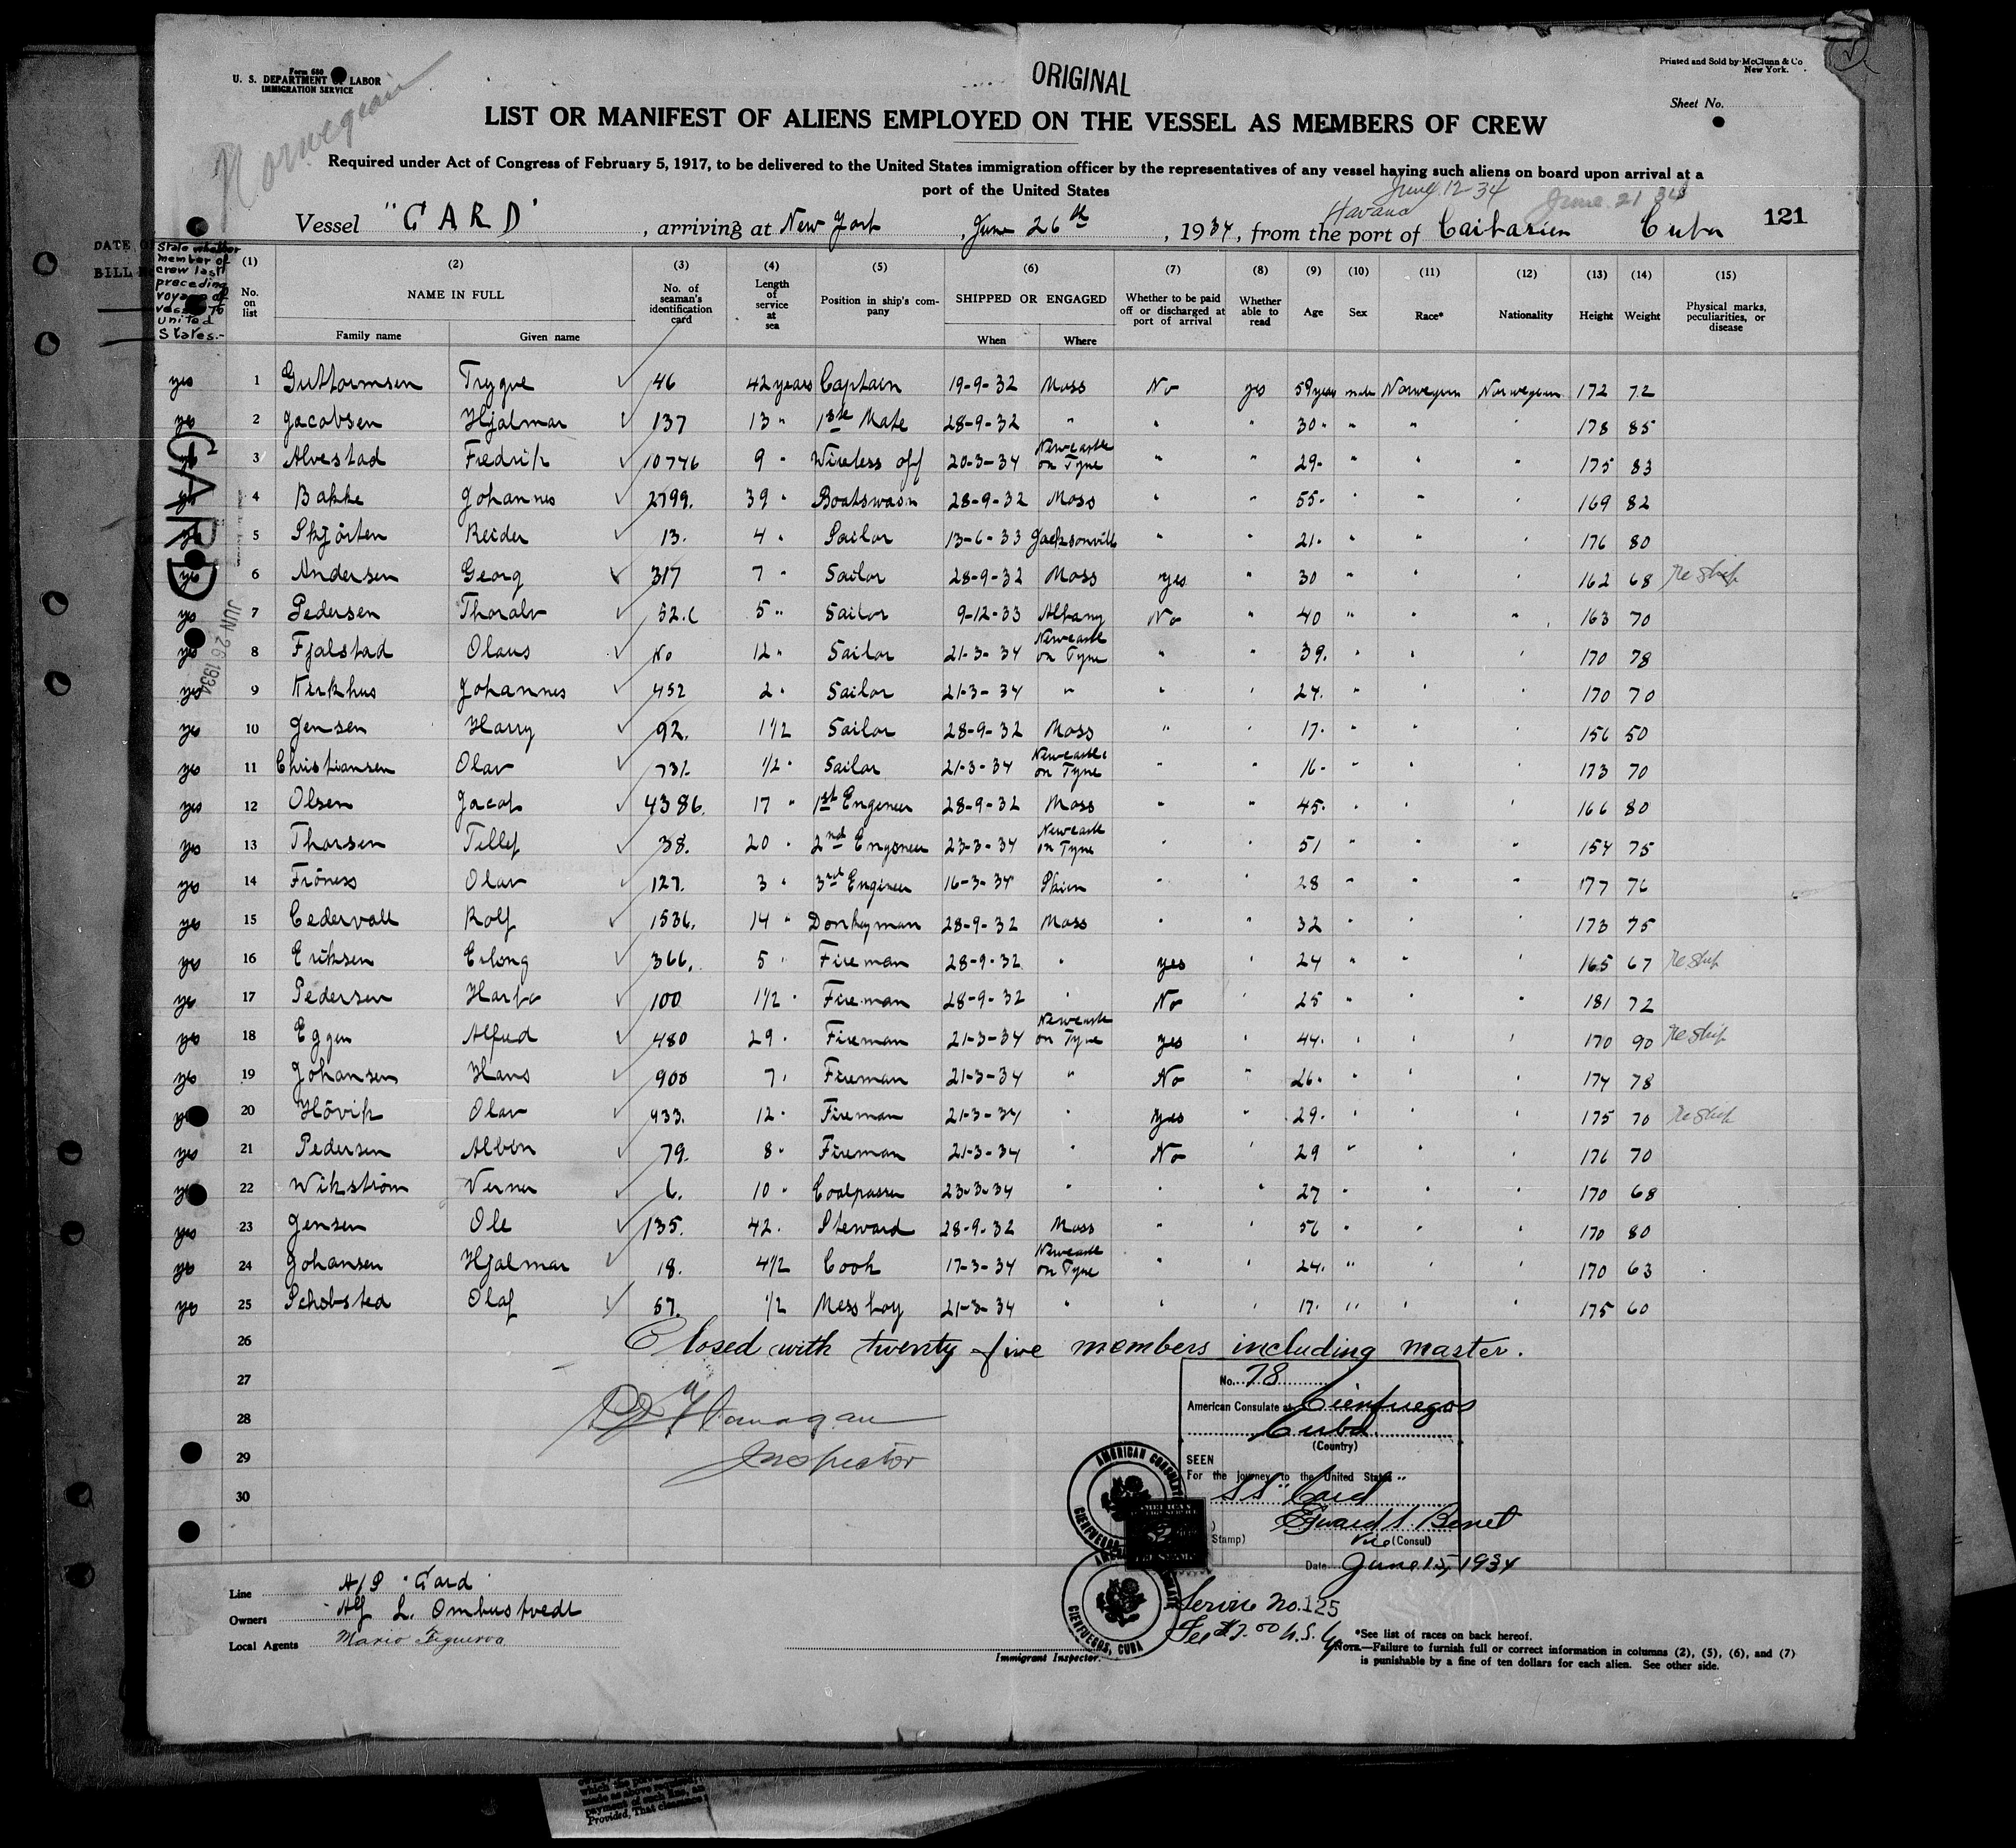 Form 680
U. S. DEPARTMENT OF LABOR
IMMIGRATION SERVICE
Norwegian
ORIGINAL
Printed and Sold by McClunn & Co
New York.
Sheet No.
LIST OR MANIFEST OF ALIENS EMPLOYED ON THE VESSEL AS MEMBERS OF CREW
Required under Act of Congress of February 5, 1917, to be delivered to the United States immigration officer by the representatives of any vessel having such aliens on board upon arrival at a
port of the United States
June 12-34 June 21 34
Havana
Vessel "GARD", arriving at New York, June 26th, 1934, from the port of Caibarien Cuba 121
DATE OF
BILL
State whether member of crew last preceding voyage of vessel to United States.-
(1) No. on list
(2) NAME IN FULL Family name Given name
(3) No. of seaman's identification card
(4) Length of service at sea
(5) Position in ship's company
(6) SHIPPED OR ENGAGED When Where
(7) Whether to be paid off or discharged at port of arrival
(8) Whether able to read
(9) Age
(10) Sex
(11) Race*
(12) Nationality
(13) Height
(14) Weight
(15) Physical marks, peculiarities, or disease
yes 1 Guttormsen Trygve 46 42 years Captain 19-9-32 Moss No yes 59 years male Norwegian Norwegian 172 72
yes 2 Jacobsen Hjalmar 137 13 " 1ste Mate 28-9-32 " " " 30 " " " " 178 85
3 Alvestad Fredrik 10746 9 " Wireless off 20-3-34 Newcastle on Tyne " " 29 " " " 175 83
yes 4 Bakke Johannes 2799. 39 " Boatswain 28-9-32 Moss " " 55 " " " 169 82
5 Skjörten Reider 13. 4 " Sailor 13-6-33 Jacksonville " " 21 " " " 176 80
yes 6 Andersen Georg 317 7 " Sailor 28-9-32 Moss yes " 30 " " " 162 68 Re Ship
yes 7 Pedersen Thoralv 5 " Sailor 9-12-33 Albany No " 40 " " " 163 70
yes 8 Fjalstad Olaus No 12 " Sailor 21-3-34 Newcastle on Tyne " " 39. " " " 170 78
yes 9 Kirkhus Johannes 452 2 " Sailor 21-3-34 " " " 24. " " " 170 70
yes 10 Jensen Harry 92. 1 1/2 Sailor 28-9-32 Moss " " 17 " " " 156 50
yes 11 Christiansen Olav 731. 1/2 " Sailor 21-3-34 Newcastle on Tyne " " 16 " " " 173 70
yes 12 Olsen Jacob 4386. 17 " 1st Engineer 28-9-32 Moss " " 45 " " " 166 80
yes 13 Thorsen Tellef 38. 20 " 2nd Engineer 23-3-34 Newcastle on Tyne " " 51 " " " 154 75
yes 14 Fröness Olav 127. 3 " 3rd Engineer 16-3-34 Skien " " 28 " " " 177 76
yes 15 Cedervall Rolf 1536. 14 " Donkeyman 28-9-32 Moss " " 32 " " " 173 75
yes 16 Eriksen Erling 366. 5 " Fireman 28-9-32 " yes " 24 " " " 165 67 Re Ship
yes 17 Pedersen 100 1 1/2 " Fireman 28-9-32 " No " 25 " " " 181 72
yes 18 Eggen Alfred 480 29 " Fireman 21-3-34 Newcastle on Tyne yes " 44. " " " 170 90 Re Ship
yes 19 Johansen Hans 900 7 " Fireman 21-3-34 " No " 26 " " " 174 78
20 Hövik Olav 933. 12 " Fireman 21-3-34 " yes " 29 " " " 175 70 Re Ship
yes 21 Pedersen Albin 79. 8 " Fireman 21-3-34 " No " 29 " " " 176 70
22 Wikström Verner 6. 10 " Coalpasser 23-3-34 " " " 27 " " " 170 68
yes 23 Jensen Ole 135. 42. Steward 28-9-32 Moss " " 56 " " " 170 80
yes 24 Johansen Hjalmar 18. 4 1/2 Cook 17-3-34 Newcastle on Tyne " " 24. " " " 170 63
yes 25 Schobsted Olaf 57. 1/2 Messboy 21-3-34 " " " 17. " " " 175 60
GARD
JUN 26 1934
26 Closed with twenty five members including master.
27
28
29
30
Flanagan
Inspector
No. 78
American Consulate at Cienfuegos
Cuba
(Country)
SEEN
For the journey to the United States
SS "Gard
Edward S. Benet
Vice (Consul)
Stamp)
Date June 15, 1934
AMERICAN CONSULATE
CIENFUEGOS, CUBA
Service No. 125
Fee $2.00 U.S. Cy
Line A/S "Gard"
Owners Alf L. Ombustvedt
Local Agents Mario Figueroa
Immigrant Inspector.
*See list of races on back hereof.
NOTE.—Failure to furnish full or correct information in columns (2), (5), (6), and (7)
is punishable by a fine of ten dollars for each alien. See other side.
Provided, That clearance